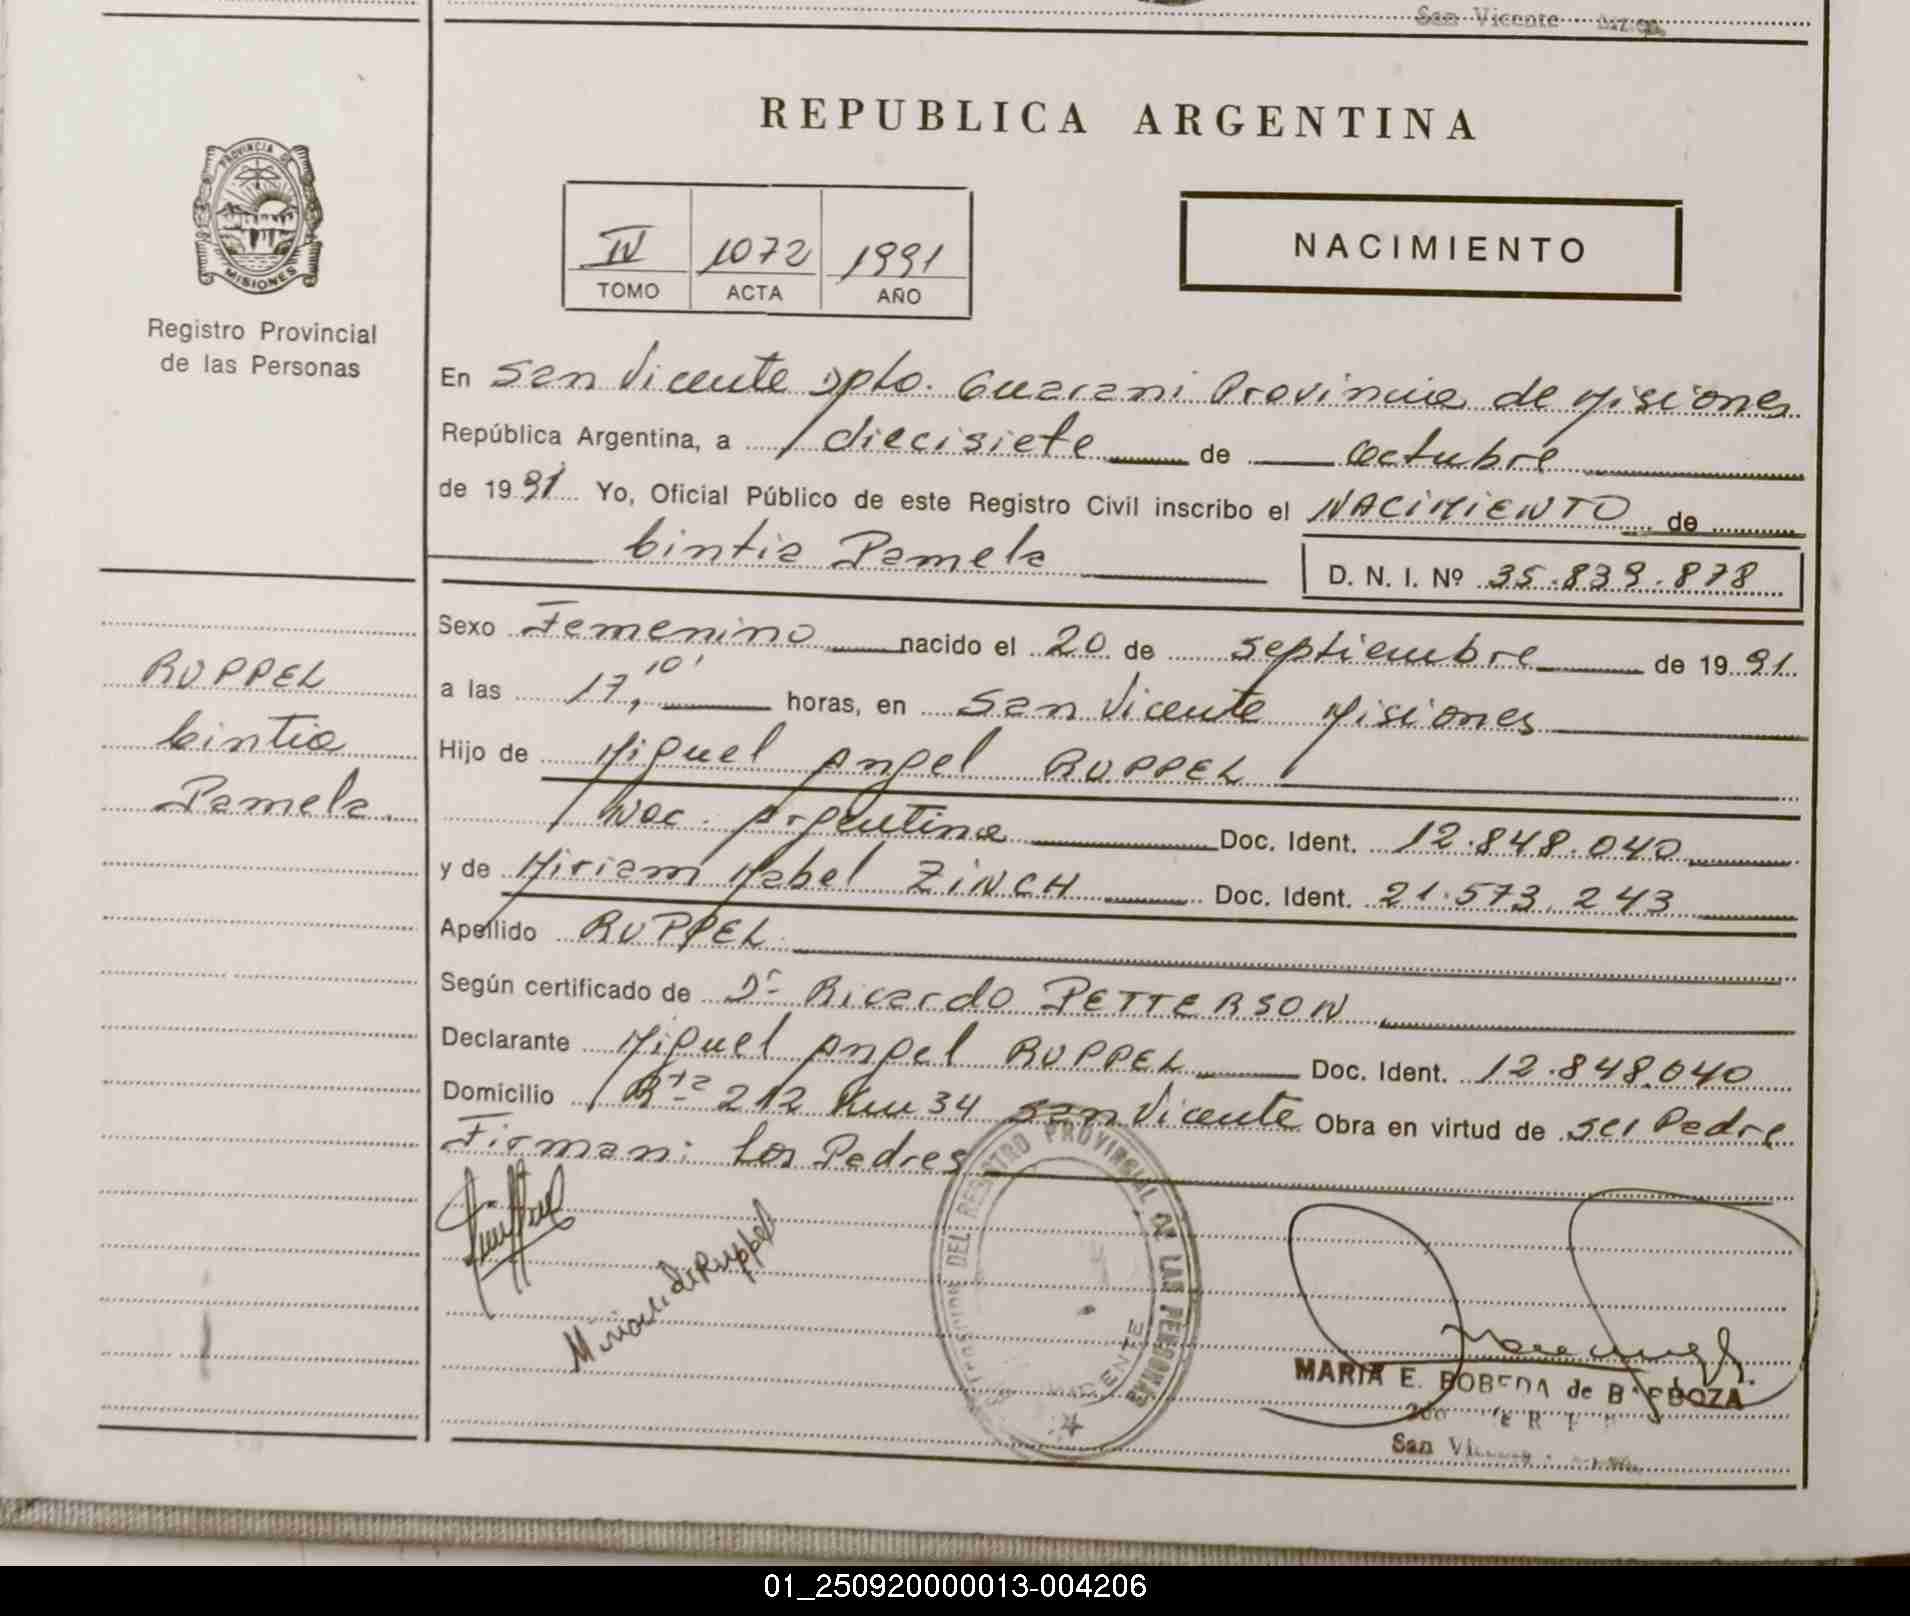 San Vicente
REPUBLICA ARGENTINA
PROVINCIA DE
MISIONES
Registro Provincial
de las Personas
IV 1072 1991
TOMO ACTA AÑO
NACIMIENTO
En San Vicente Dpto. Guarani Provincia de Misiones
República Argentina, a diecisiete de octubre
de 1991 Yo, Oficial Público de este Registro Civil inscribo el NACIMIENTO de
Cintia Pamela
D. N. I. Nº 35.839.878
Sexo Femenino nacido el 20 de septiembre de 1991
a las 17,10' horas, en San Vicente Misiones
Hijo de Miguel Angel RUPPEL
Nac. Argentina Doc. Ident. 12.848.040
y de Miriam Mabel ZINCH Doc. Ident. 21.573.243
Apellido RUPPEL
Según certificado de Dr Ricardo PETTERSON
Declarante Miguel Angel RUPPEL Doc. Ident. 12.848.040
Domicilio Rta 212 Km 34 San Vicente Obra en virtud de ser Padre
Firman: Los Padres
RUPPEL
Cintia
Pamela.
Miriam de Ruppel
DEL REGISTRO PROVINCIAL DE LAS PERSONAS
VICENTE
MARIA E. BOBEDA de BARBOZA
San Vicente
01_250920000013-004206